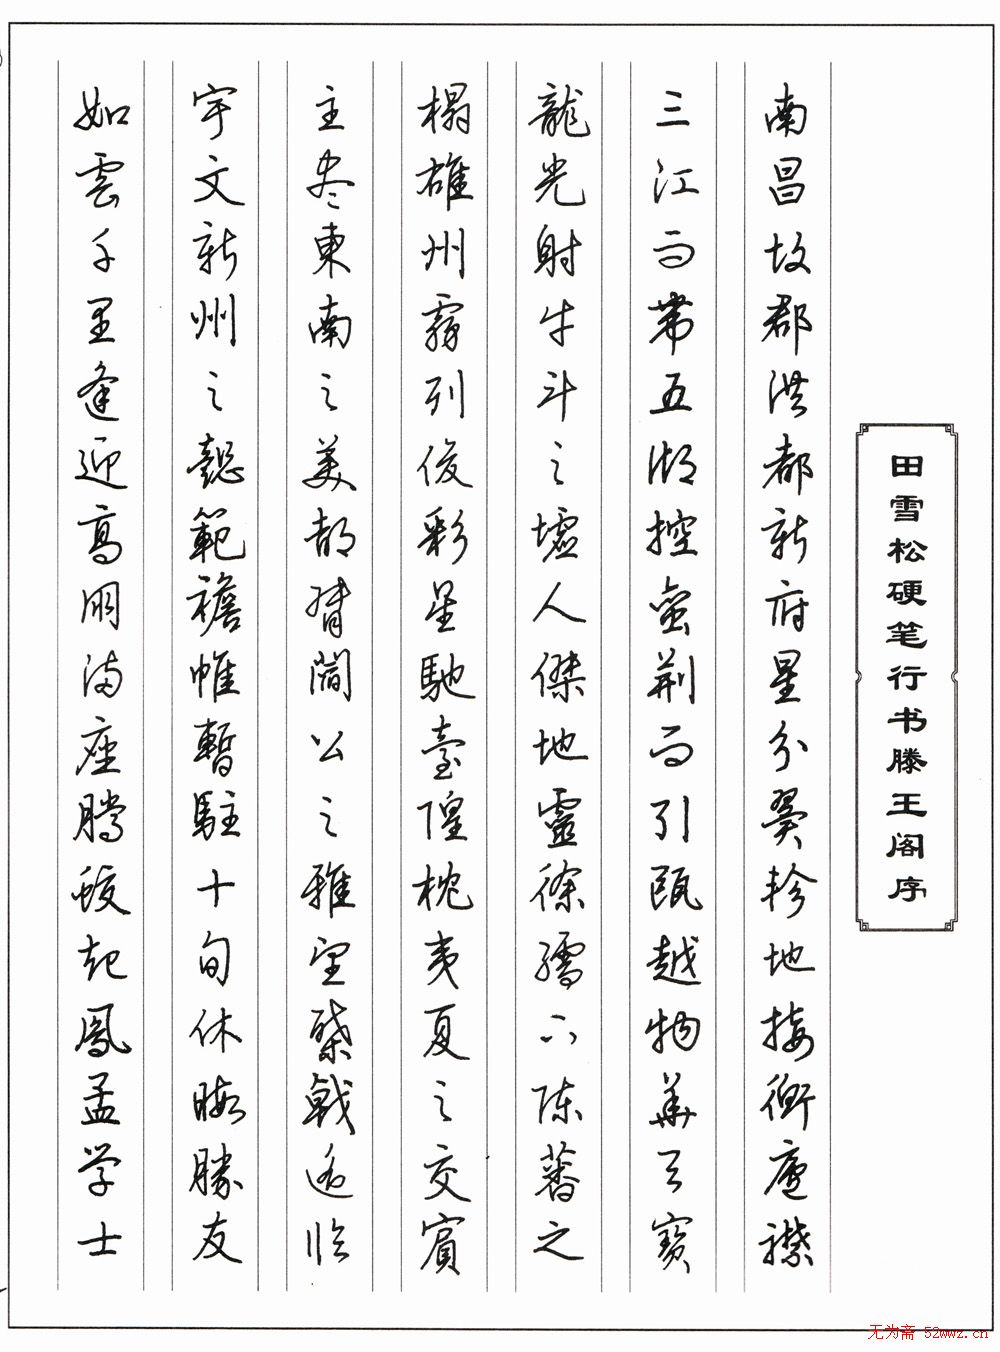 田雪松硬笔行书滕王阁序
南昌故郡洪都新府星分翼軫地接衡廬襟
三江而帶五湖控蛮荊而引甌越物華天寶
龍光射牛斗之墟人傑地靈徐孺下陳蕃之
榻雄州霧列俊彩星馳臺隍枕夷夏之交賓
主盡東南之美都督閻公之雅望棨戟遙臨
宇文新州之懿範襜帷暫駐十旬休暇勝友
如雲千里逢迎高朋滿座騰蛟起鳳孟学士
无为斋 52wwz.cn